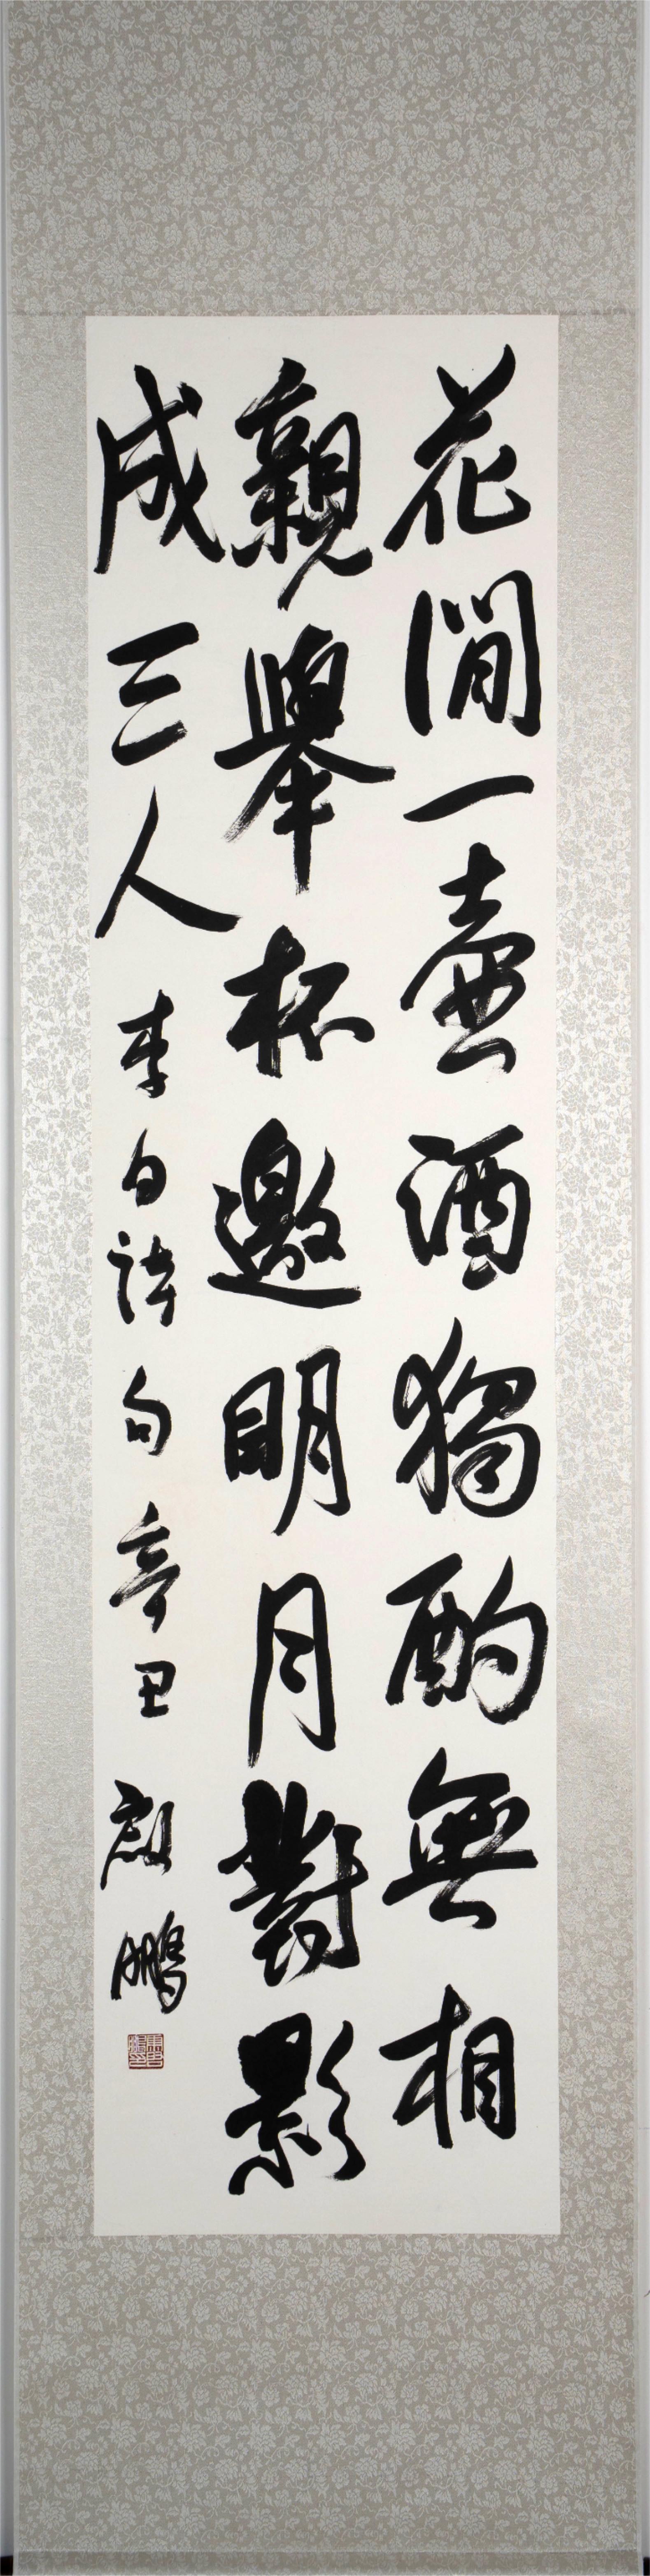 花間一壺酒獨酌無相
親舉杯邀明月對影
成三人
李白詩句辛丑啟鵬